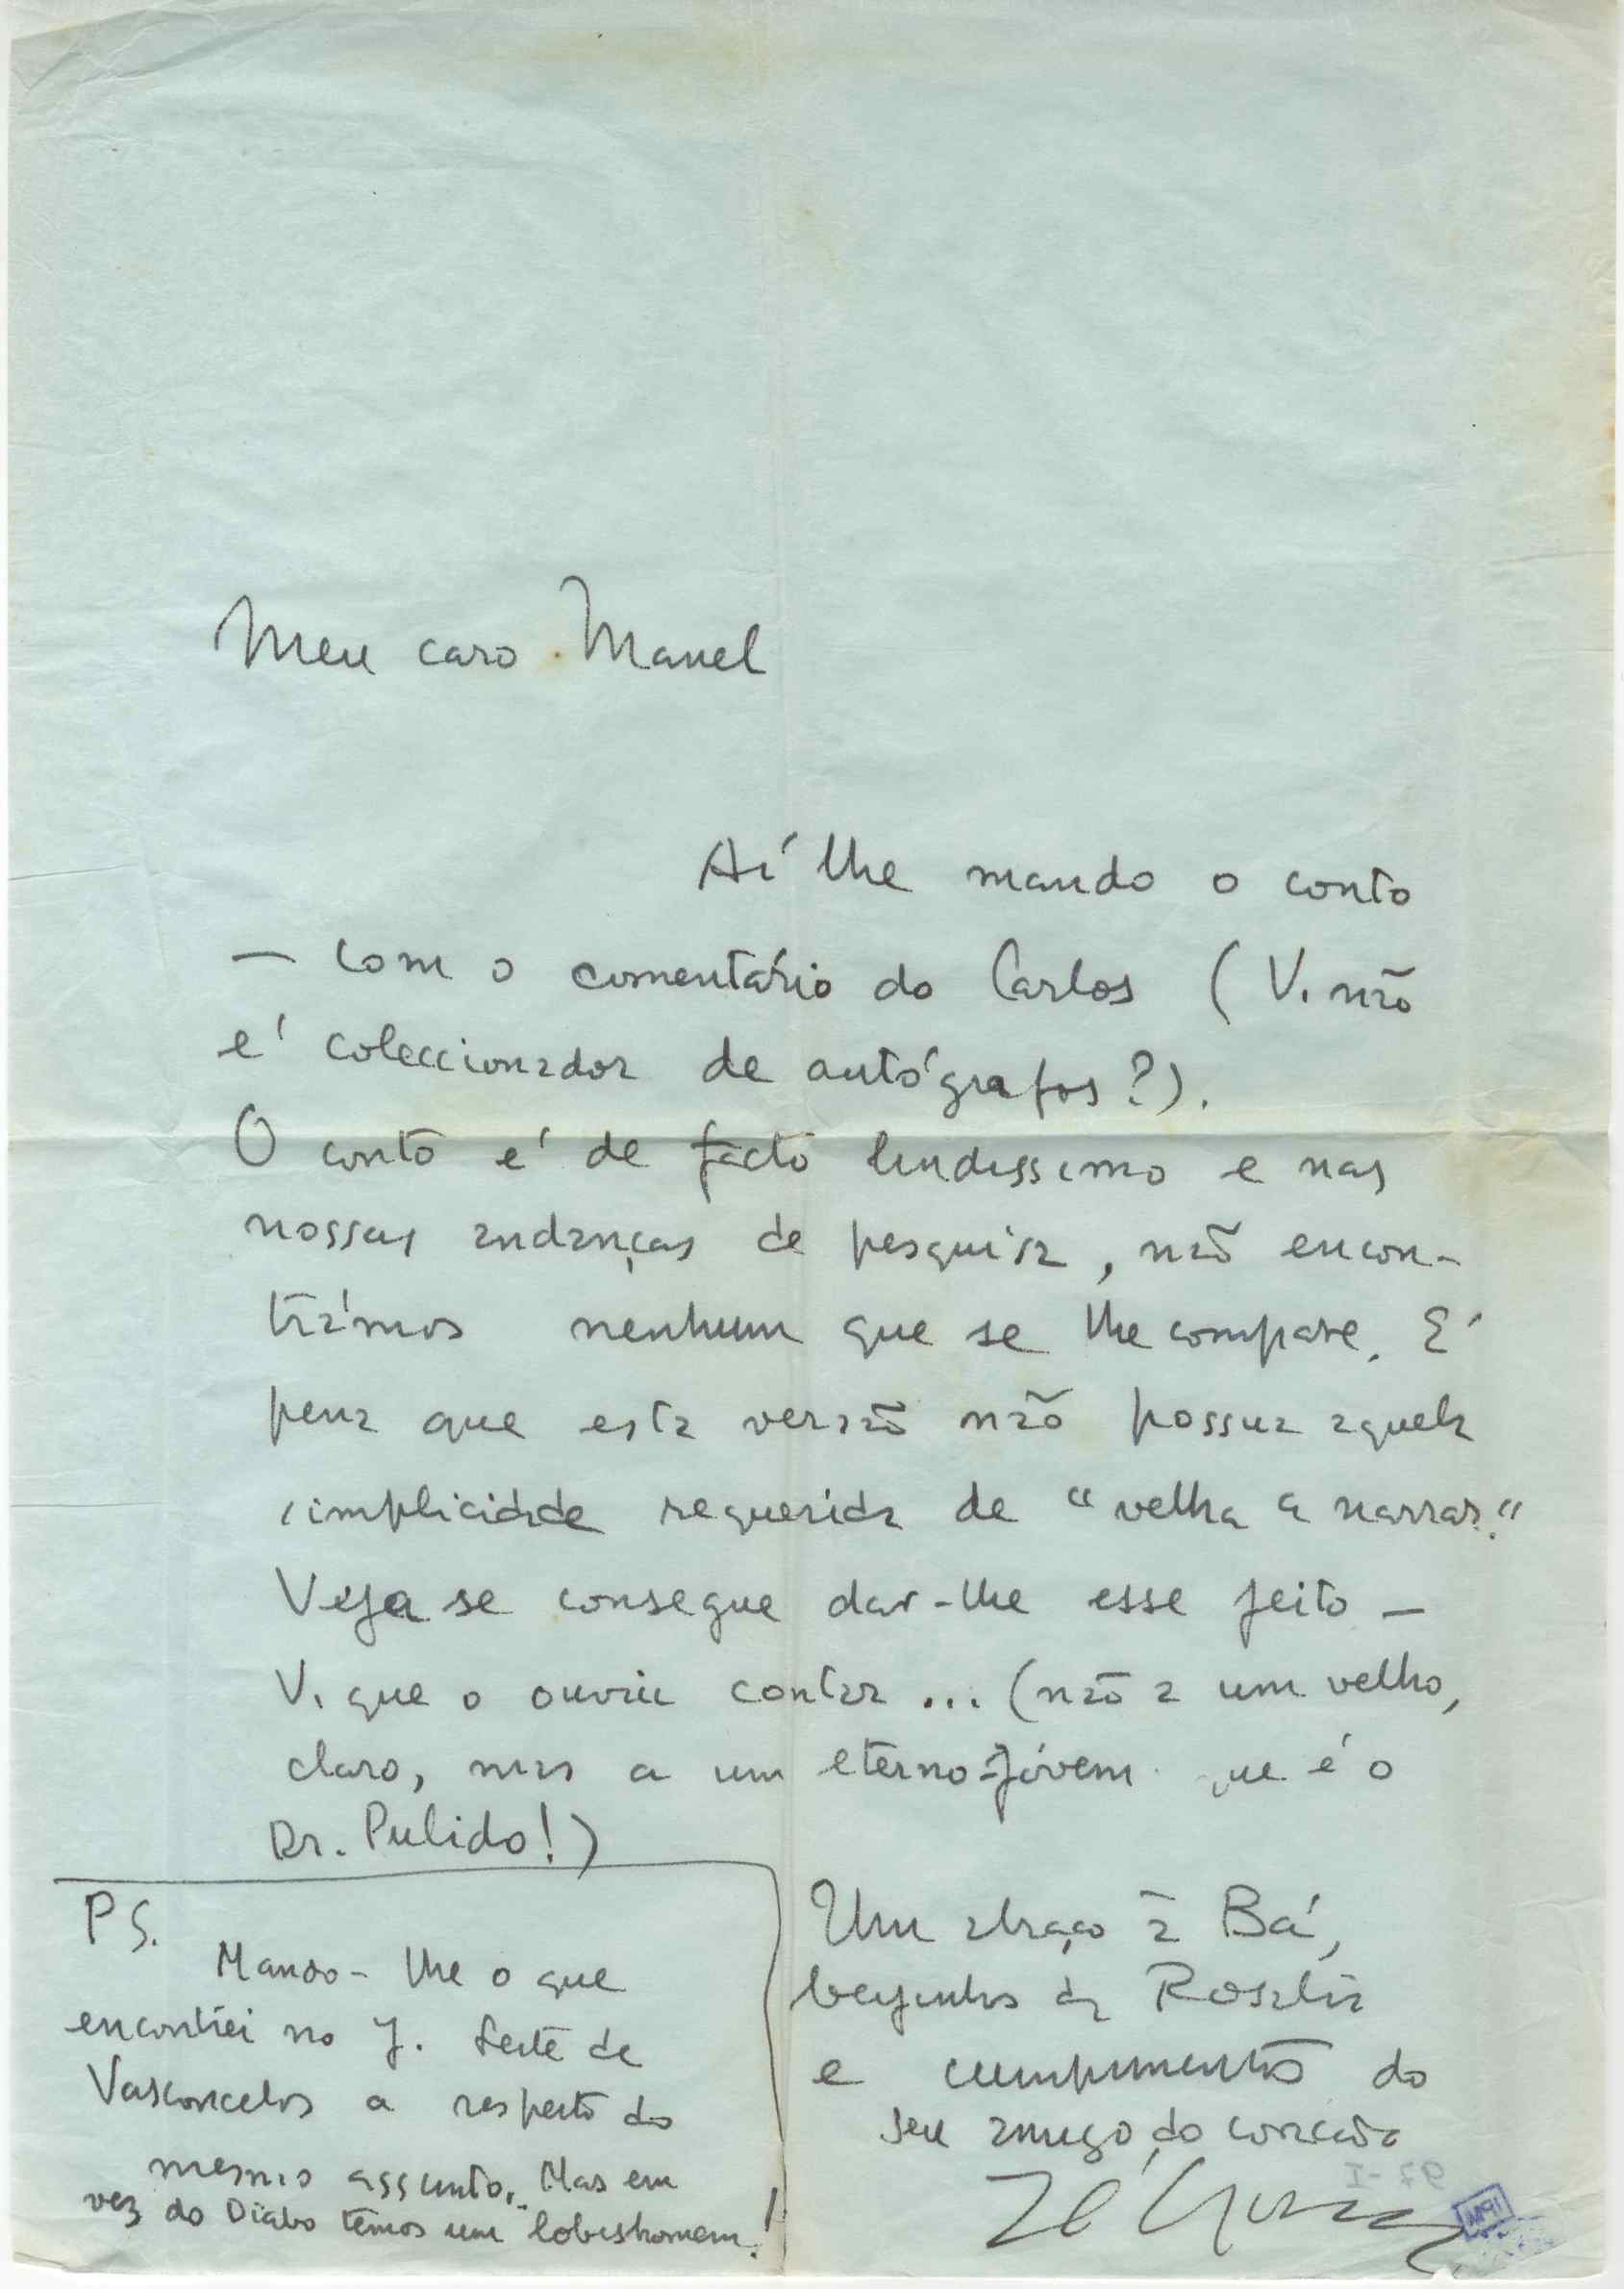 Meu caro Manel
Aí lhe mando o conto
— com o comentário do Carlos (V. não
é coleccionador de autógrafos?).
O conto é de facto lindissimo e nas
nossas andanças de pesquisa, não encon-
trámos nenhum que se lhe compare. É
pena que esta versão não possua aquela
simplicidade requerida de "velha a narrar."
Veja se consegue dar-lhe esse jeito —
V. que o ouviu contar... (não a um velho,
claro, mas a um eterno-jóvem que é o
Dr. Pulido!)
Um abraço à Bá,
beijinhos da Rosalia
e cumprimentos do
seu amigo do coração
Zé
PS.
Mando-lhe o que
encontrei no J. Leite de
Vasconcelos a respeito do
mesmo assunto. Mas em
vez do Diabo têmos um lobishomem!